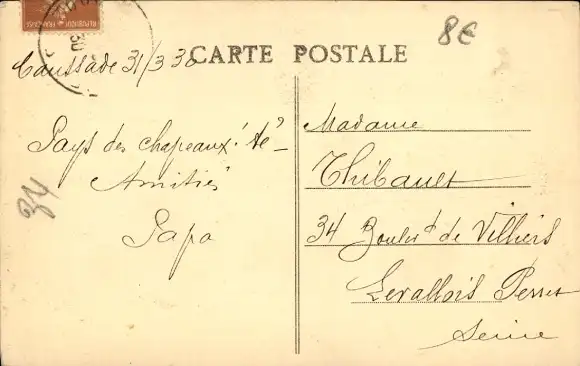 RÉPUBLIQUE FRANÇAISE
30
8€
CARTE POSTALE
Caussade 31/3 30
Pays des chapeaux!
Amitiés
Papa
34
Madame
Thibault
34 Boulevd de Villiers
Levallois Perret
Seine